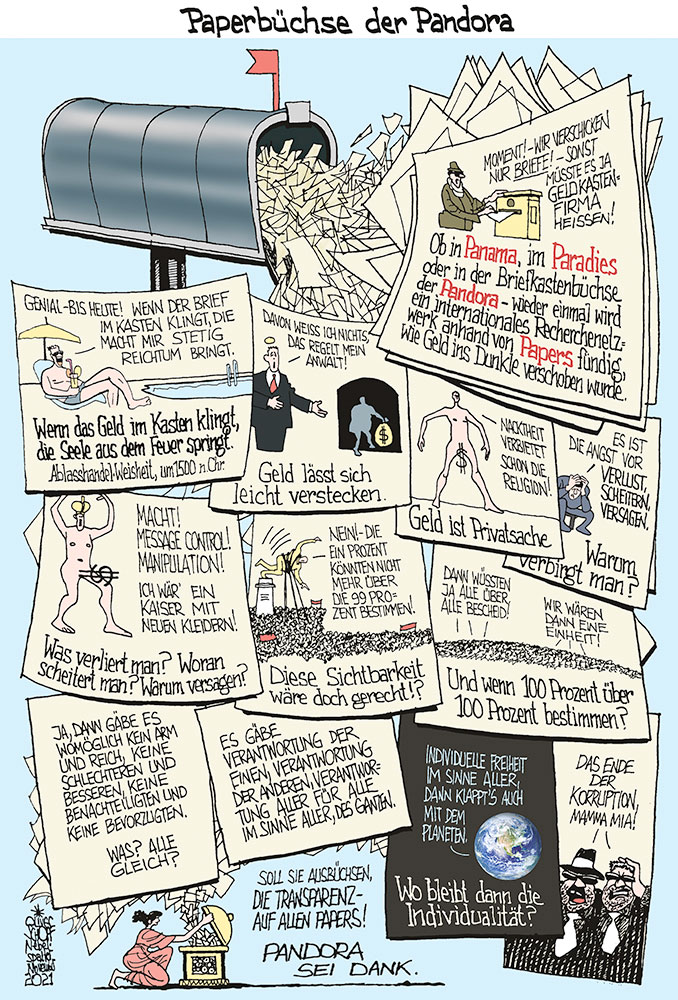 Paperbüchse der Pandora
MOMENT!-WIR VERSCHICKEN
NUR BRIEFE!-SONST
MÜSSTE ES JA
GELDKASTEN=
FIRMA
HEISSEN!
Ob in Panama, im Paradies
oder in der Briefkastenbüchse
der Pandora - wieder einmal wird
ein internationales Recherchenetz=
werk anhand von Papers fündig,
wie Geld ins Dunkle verschoben wurde.
GENIAL-BIS HEUTE! WENN DER BRIEF
IM KASTEN KLINGT, DIE
MACHT MIR STETIG
REICHTUM BRINGT.
Wenn das Geld im Kasten klingt,
die Seele aus dem Feuer springt.
Ablasshandel-Weisheit, um 1500 n.Chr.
DAVON WEISS ICH NICHTS,
DAS REGELT MEIN
ANWALT!
$
Geld lässt sich
leicht verstecken.
NACKTHEIT
VERBIETET
SCHON DIE
RELIGION!
$
Geld ist Privatsache
ES IST
DIE ANGST VOR
VERLUST,
SCHEITERN,
VERSAGEN.
Warum
verbingt man?
MACHT!
MESSAGE CONTROL!
MANIPULATION!
ICH WÄR' EIN
KAISER MIT
NEUEN KLEIDERN!
$
Was verliert man? Woran
scheitert man? Warum versagen?
NEIN!-DIE
EIN PROZENT
KÖNNTEN NICHT
MEHR ÜBER
DIE 99 PRO=
ZENT BESTIMMEN!
Diese Sichtbarkeit
wäre doch gerecht!?
DANN WÜSSTEN
JA ALLE ÜBER
ALLE BESCHEID!
WIR WÄREN
DANN EINE
EINHEIT!
Und wenn 100 Prozent über
100 Prozent bestimmen?
JA, DANN GÄBE ES
WOMÖGLICH KEIN ARM
UND REICH, KEINE
SCHLECHTEREN UND
BESSEREN, KEINE
BENACHTEILIGTEN UND
KEINE BEVORZUGTEN.
WAS? ALLE
GLEICH?
ES GÄBE
VERANTWORTUNG DER
EINEN, VERANTWORTUNG
DER ANDEREN, VERANTWOR=
TUNG ALLER FÜR ALLE
IM SINNE ALLER, DES GANZEN.
INDIVIDUELLE FREIHEIT
IM SINNE ALLER,
DANN KLAPPT'S AUCH
MIT DEM
PLANETEN.
Wo bleibt dann die
Individualität?
DAS ENDE
DER
KORRUPTION,
MAMMA MIA!
SOLL SIE AUSBÜCHSEN,
DIE TRANSPARENZ-
AUF ALLEN PAPERS!
PANDORA
SEI DANK.
OLIVER
SCHOPF
NEBEL
SPALTER
2021